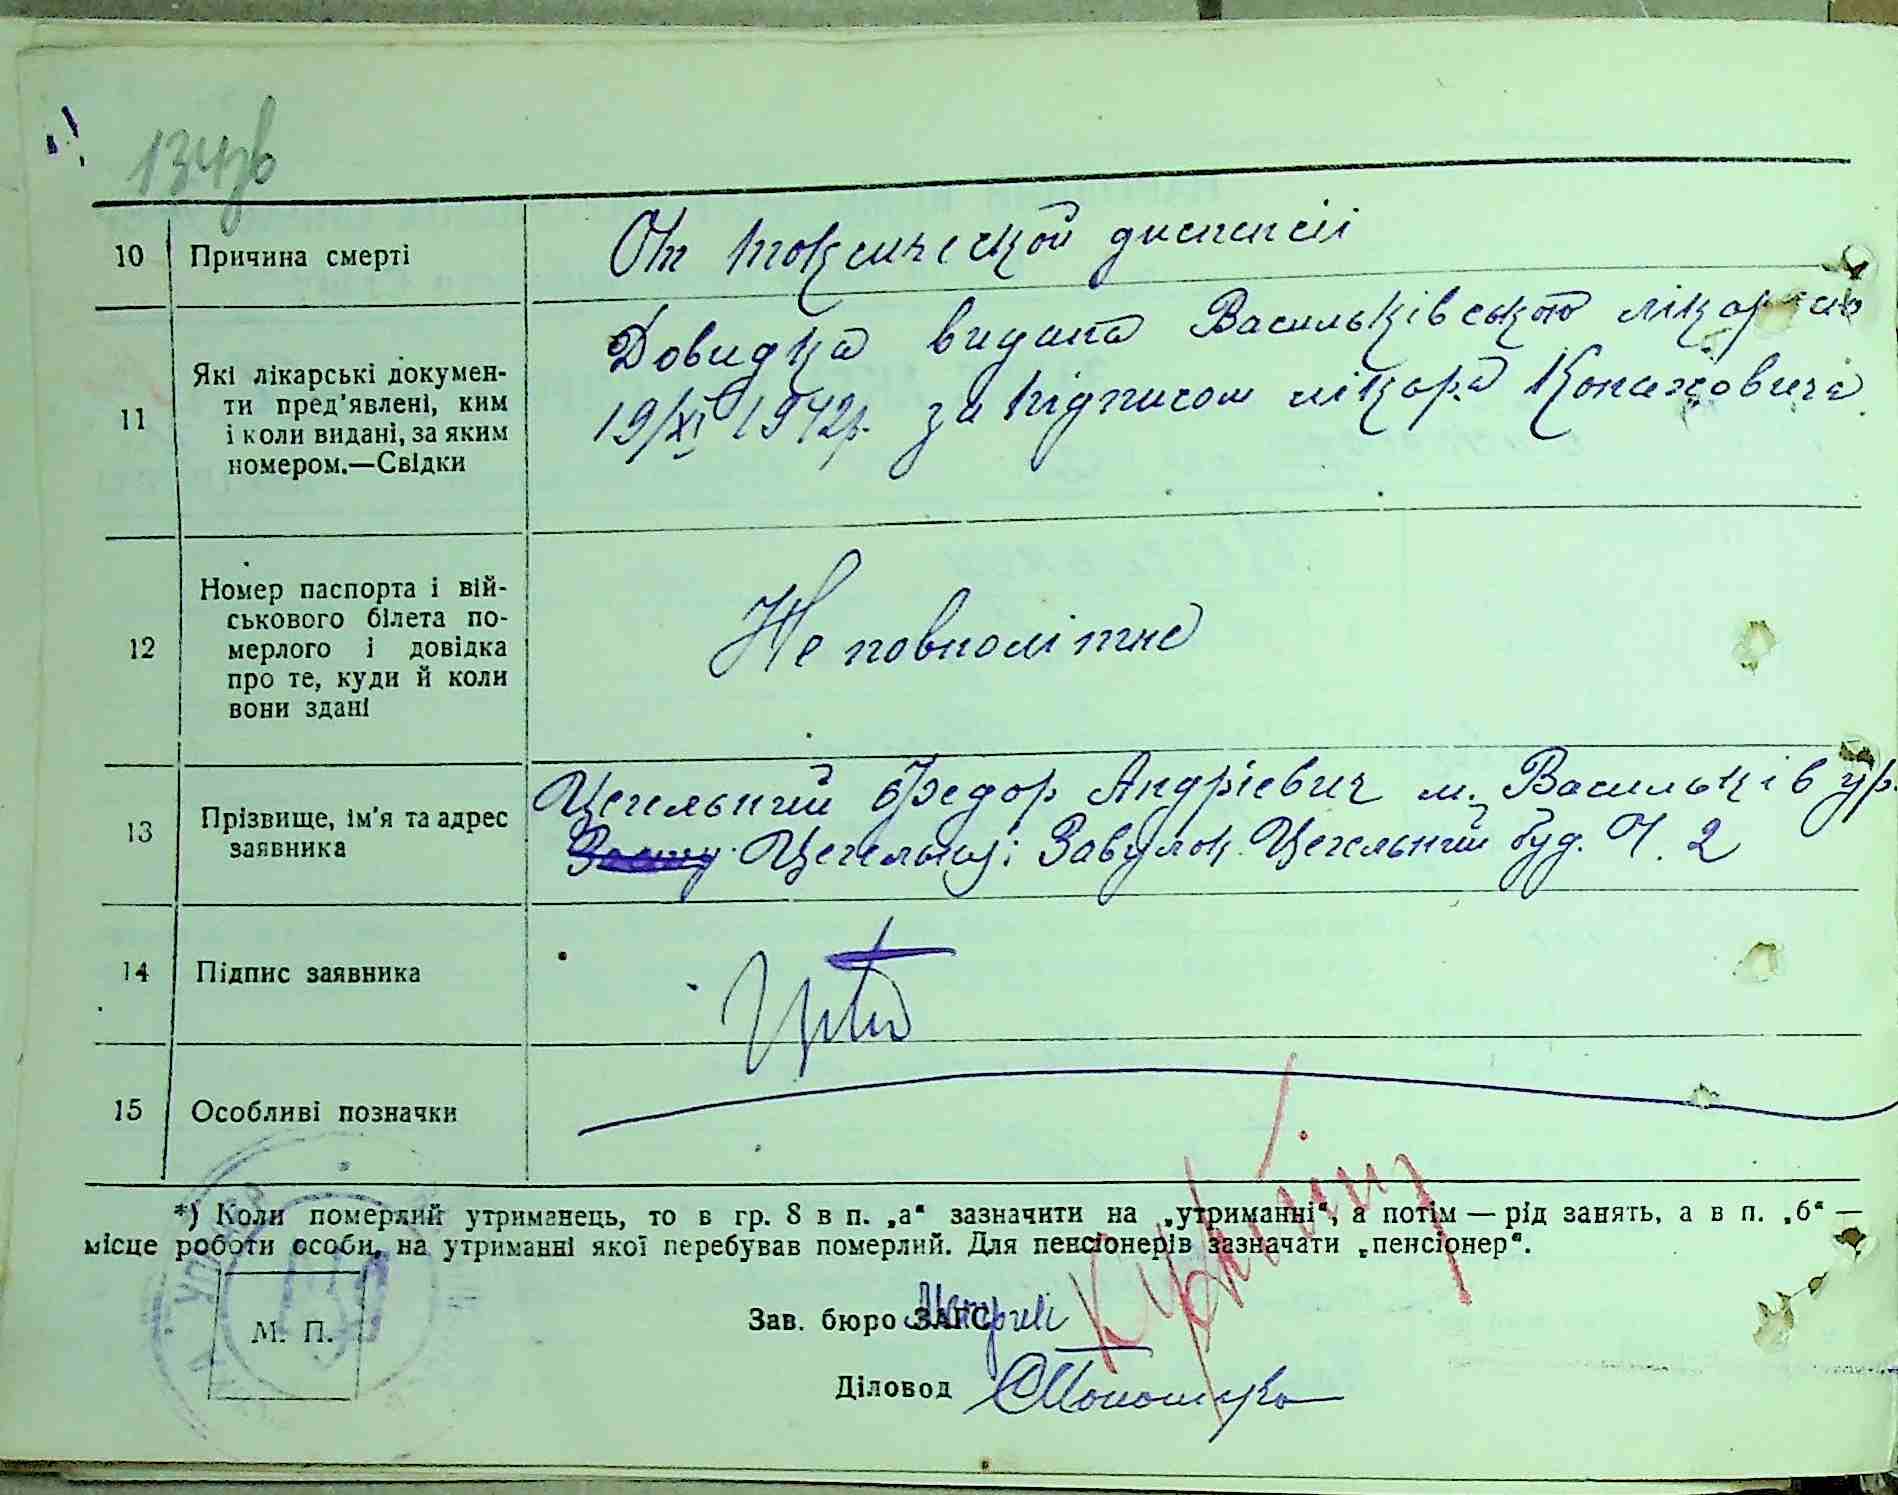 134зв
10 Причина смерті От токсической диспепсії
11 Які лікарські докумен-
ти пред'явлені, ким
і коли видані, за яким
номером.—Свідки
Довидка видана Васильківською лікарнею
19/XI 1942р. за підписом лікаря
12 Номер паспорта і вій-
ськового білета по-
мерлого і довідка
про те, куди й коли
вони здані
Не повнолітнє
13 Прізвище, ім'я та адрес
заявника
Цегельний Федор Андрієвич м. Васильків ур.
Цегельня; Завулок Цегельний буд. Ч. 2
14 Підпис заявника
15 Особливі позначки
*) Коли померлий утриманець, то в гр. 8 в п. „а“ зазначити на „утриманні“, а потім — рід занять, а в п. „б“ —
місце роботи особи, на утриманні якої перебував померлий. Для пенсіонерів зазначати „пенсіонер“.
М. П.
Зав. бюро ЗАГС
Діловод